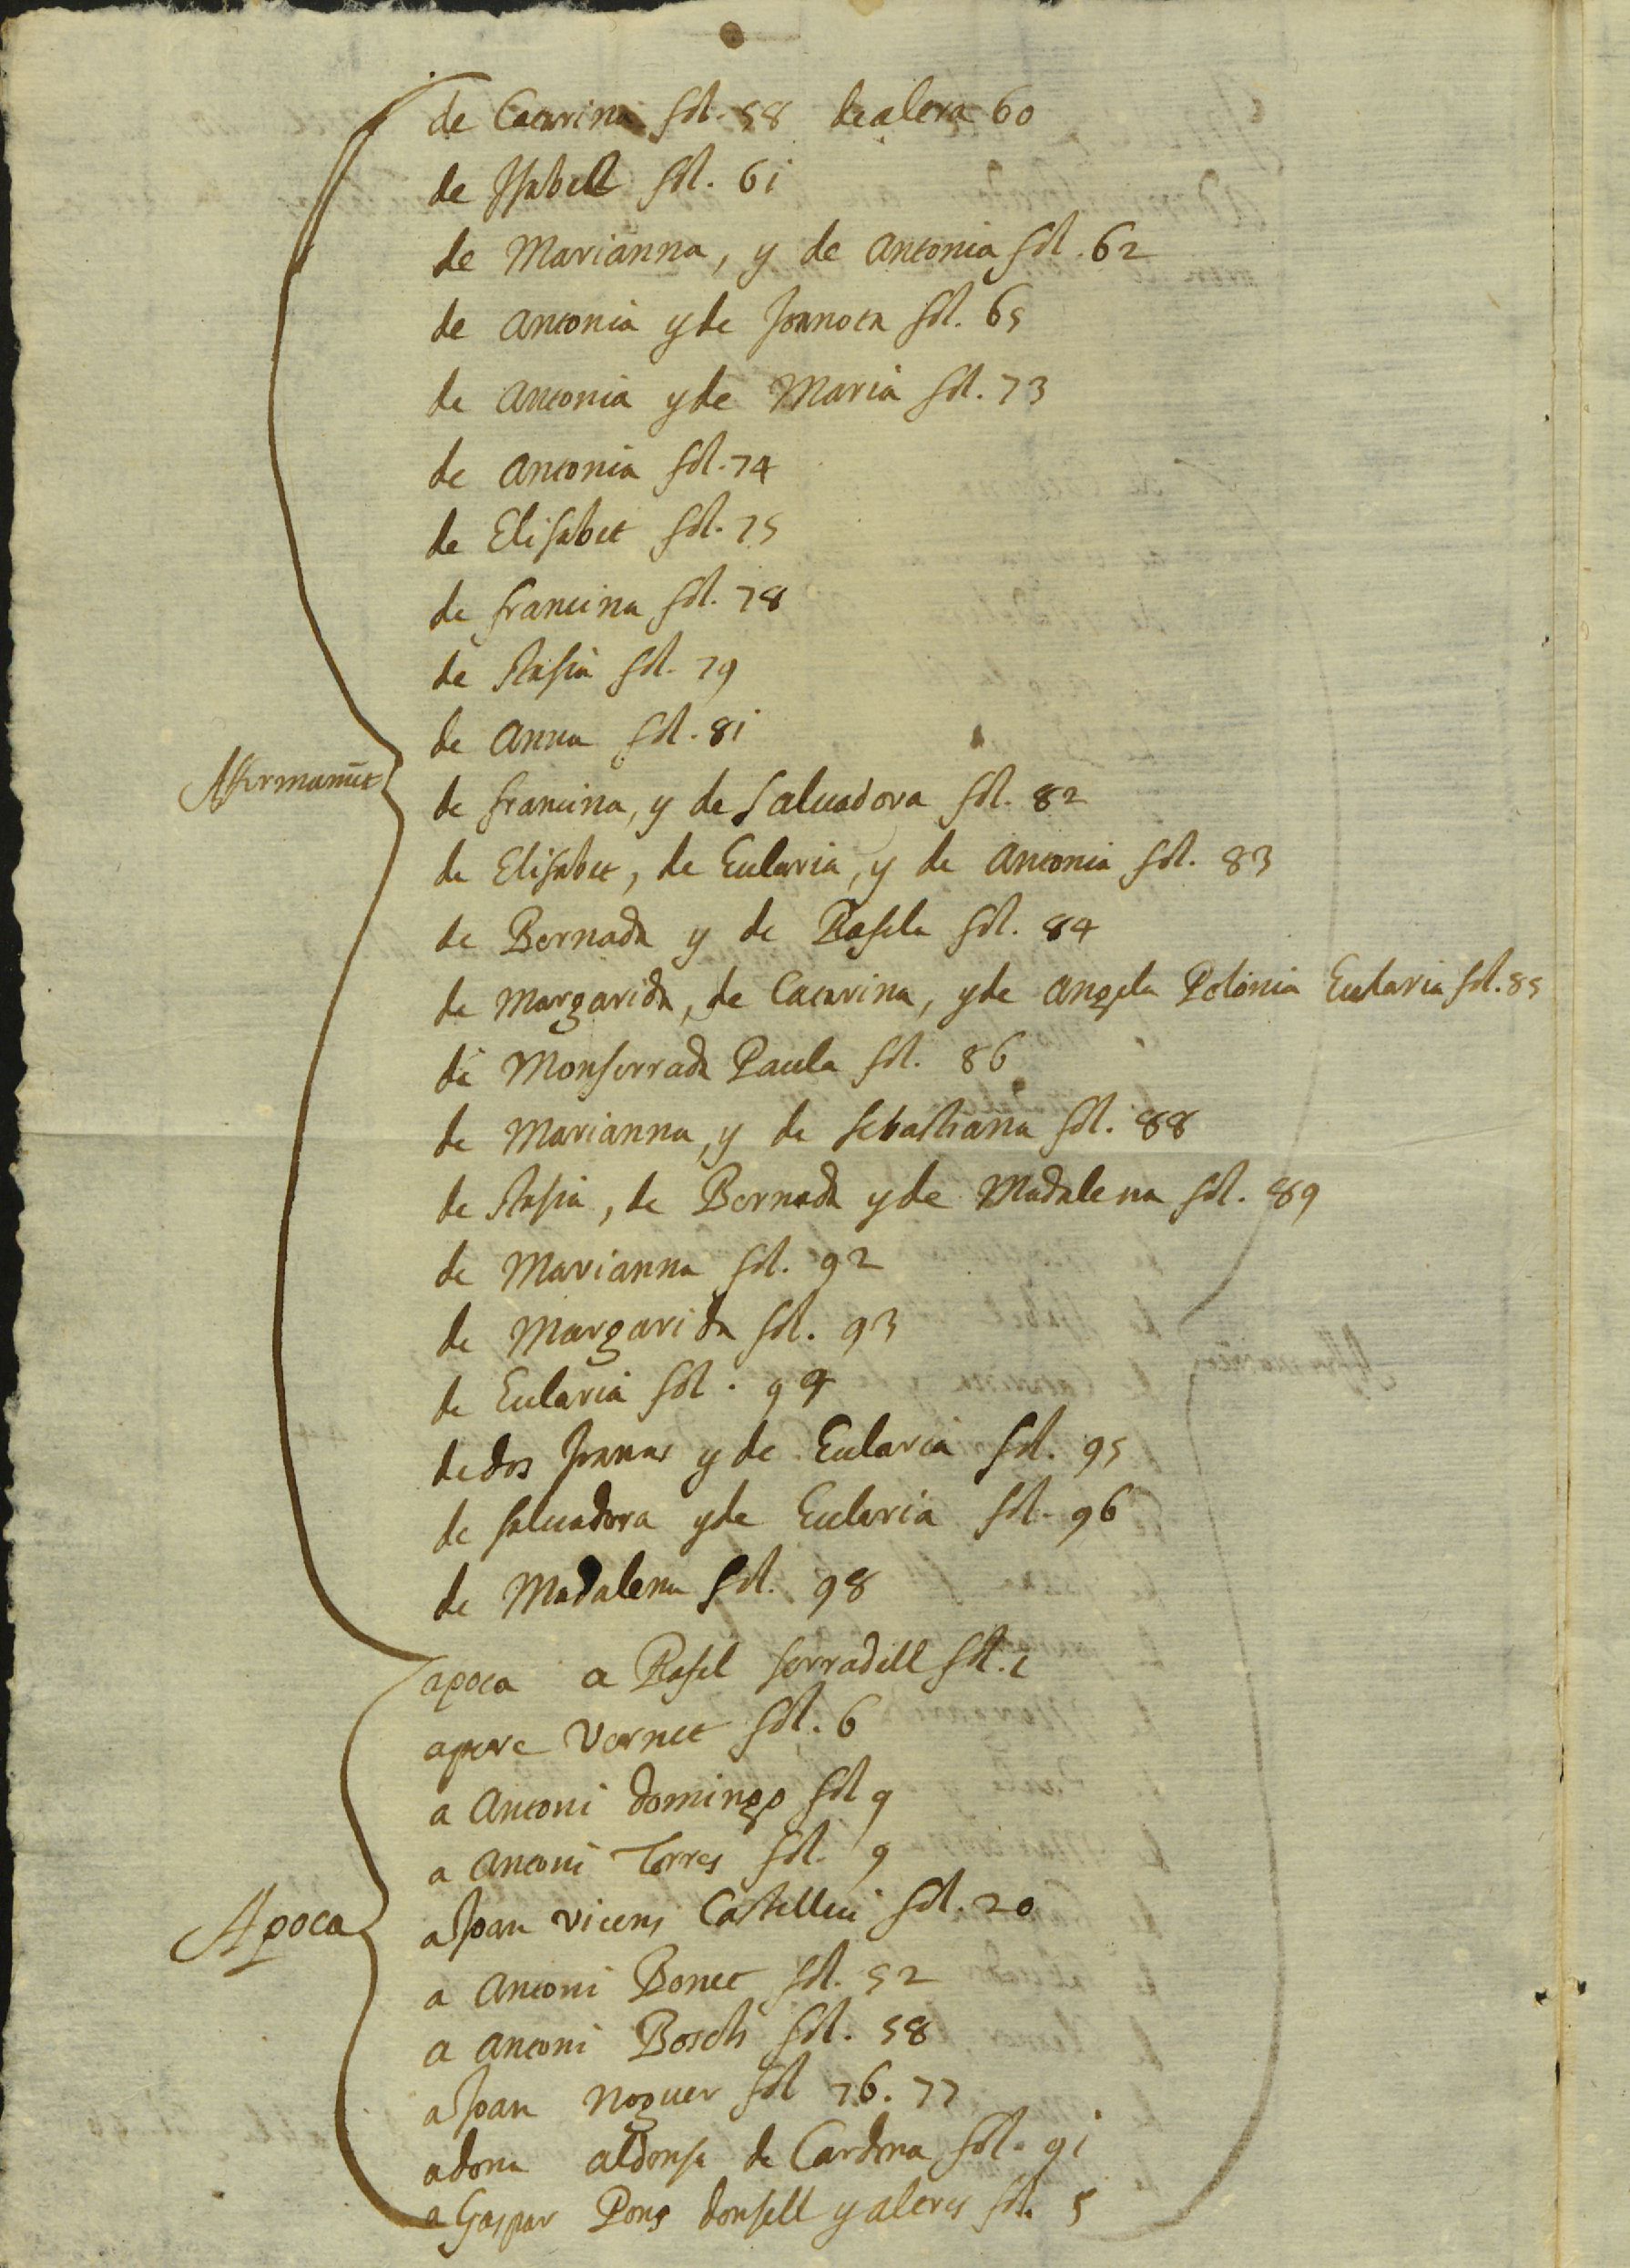 de Catarina fol. 58 de altra 60
de Isabell fol. 61
de Marianna, y de Antonia fol. 62
de Antonia y de Joanota fol. 65
de Antonia y de Maria fol. 73
de Antonia fol. 74
de Elisabet fol. 75
de francina fol. 78
de Stasia fol. 79
de Anna fol. 81
Affirmament
de francina, y de Saluadora fol. 82
de Elisabet, de Eularia, y de Antonia fol. 83
de Bernada y de Rafela fol. 84
de Margarida, de Catarina, y de Angela Polonia Eularia fol. 85
de Monserrada Paula fol. 86
de Marianna, y de Sebastiana fol. 88
de Stasia, de Bernada y de Madalena fol. 89
de Marianna fol. 92
de Margarida fol. 93
de Eularia fol. 94
de dos Joanas y de Eularia fol. 95
de saluadora y de Eularia fol. 96
de Madalena fol. 98
apoca a Rafel serradell fol. 1
a pere Vernet fol. 6
a Antoni domingo fol 9
a Antoni Torres fol. 9
Apoca
a Joan vicens Castellui fol. 20
a Antoni Bonet fol. 52
a Antoni Bosch fol. 58
a Joan noguer fol 76. 77
a dona aldonsa de Cardona fol. 91
a Gaspar Pons donsell y altres fol. 5